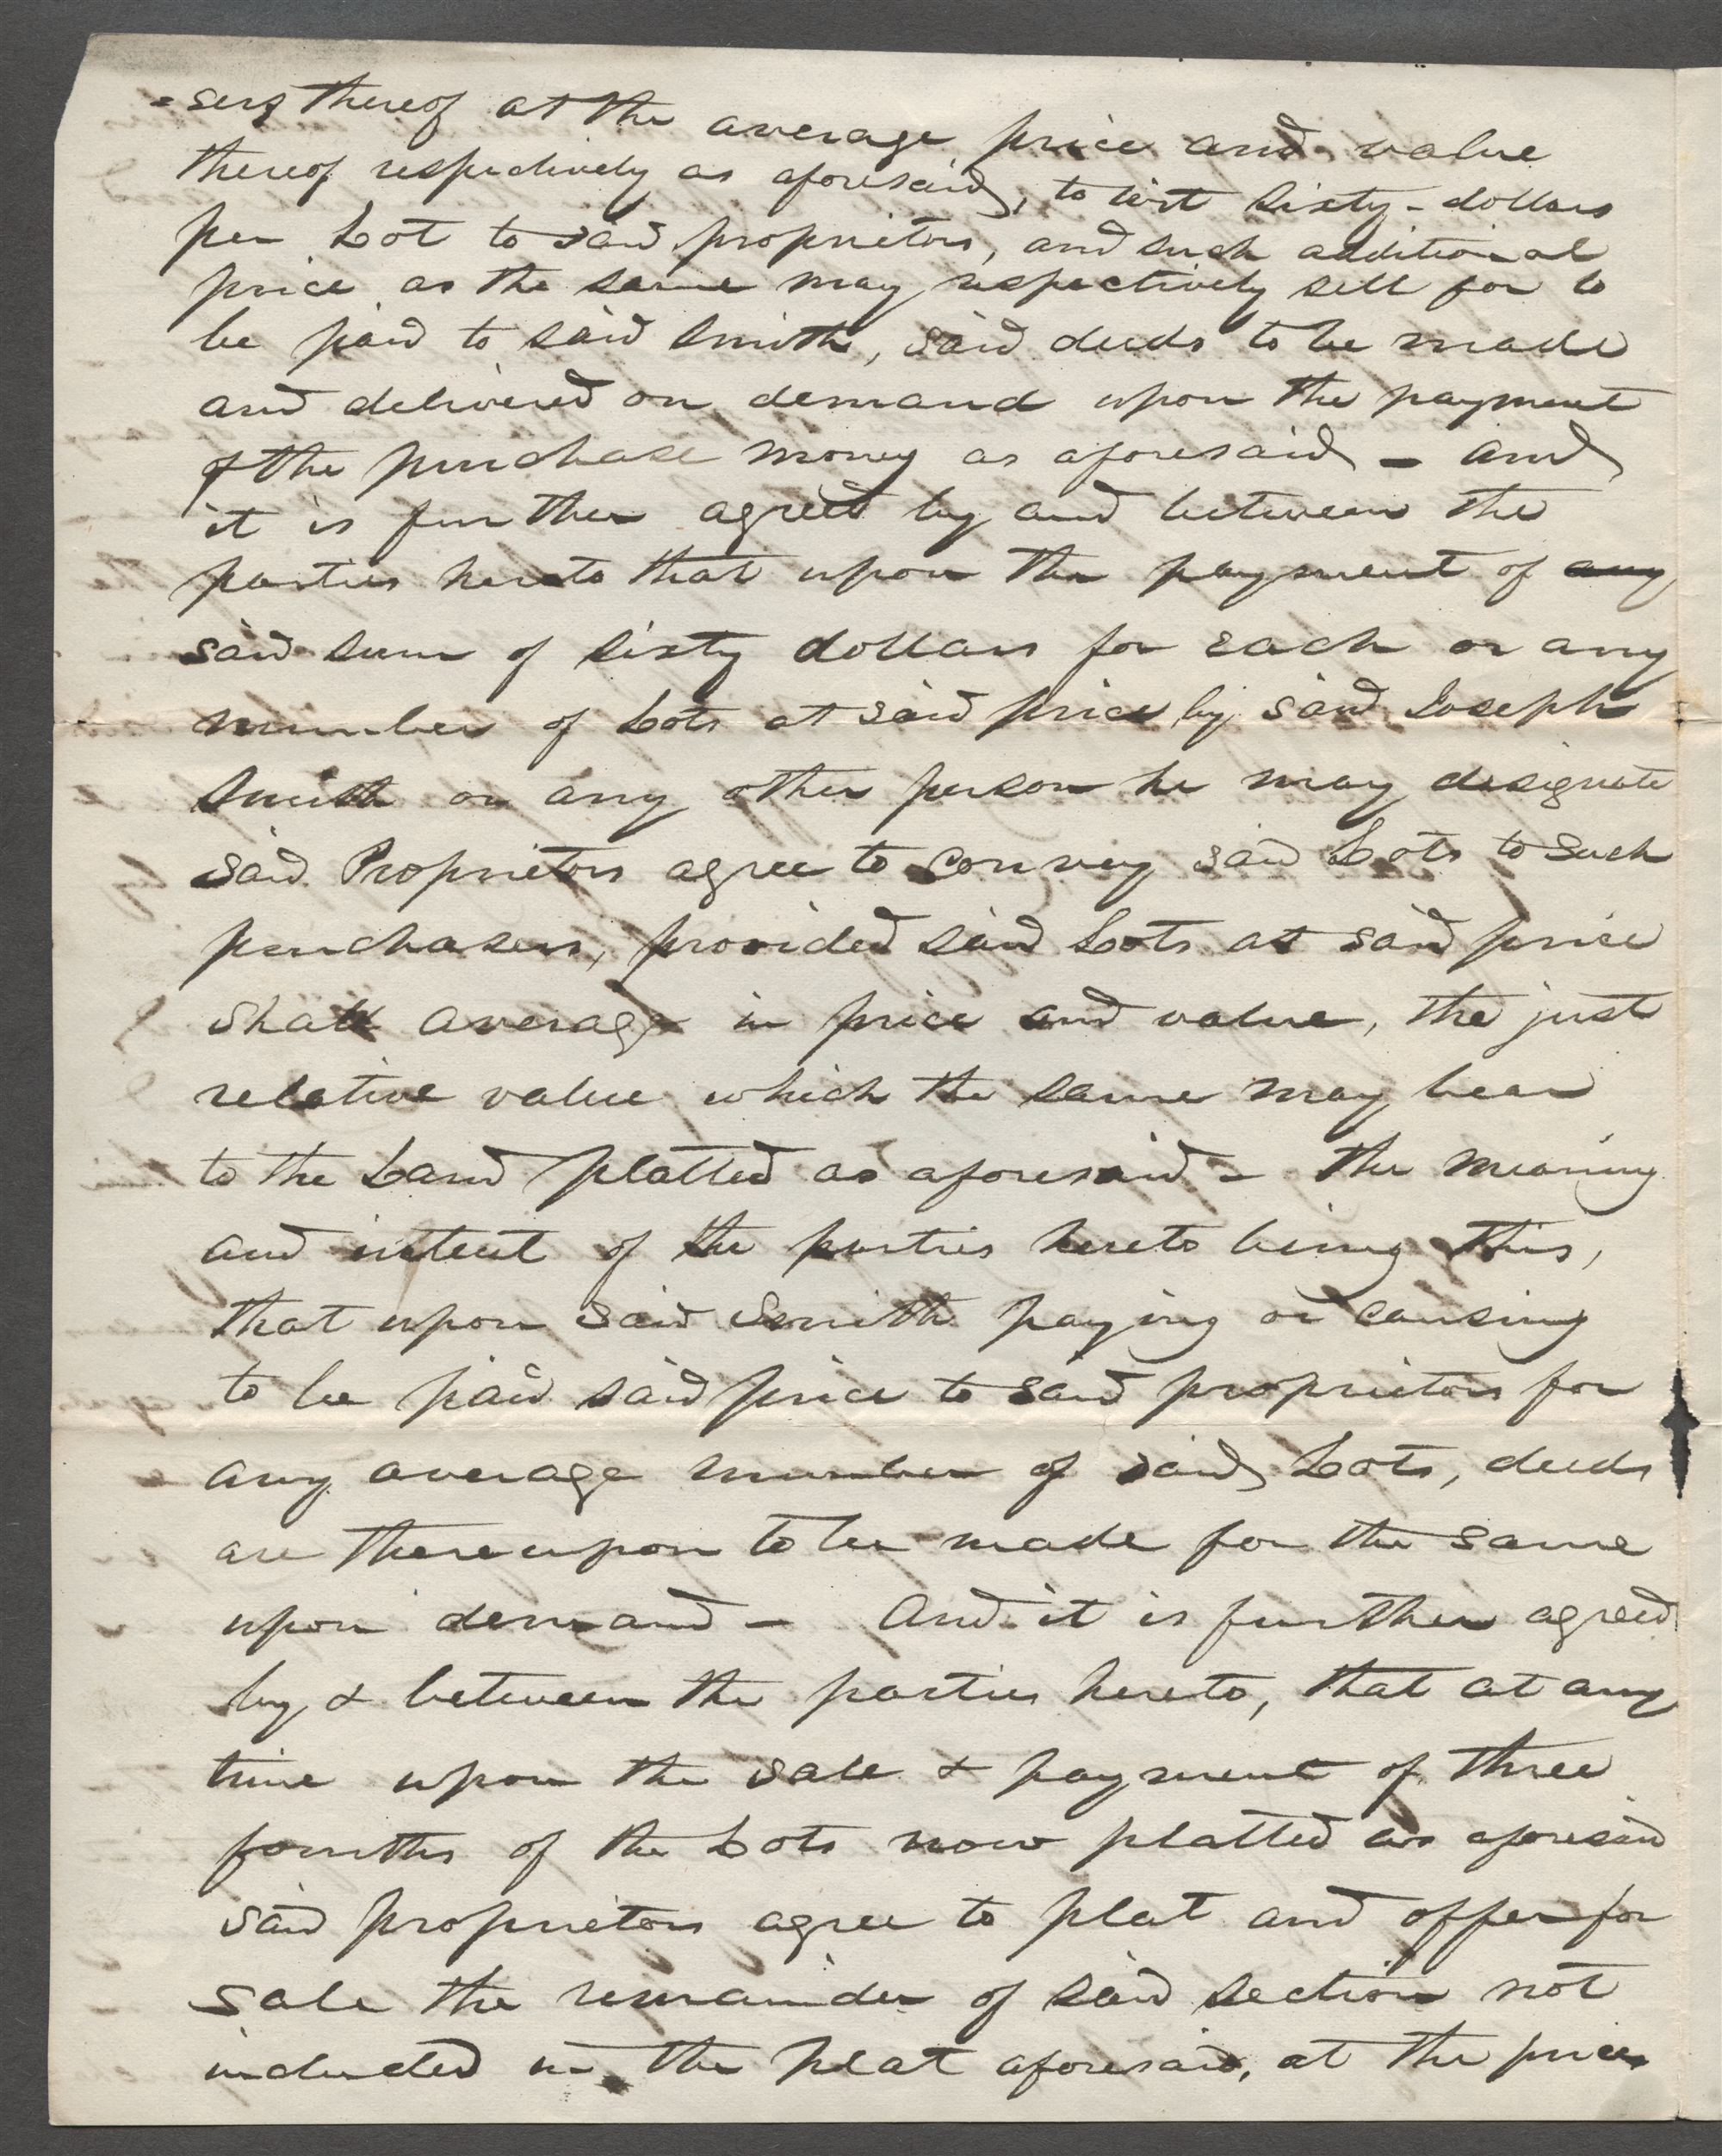 =sers thereof at the average price and value
thereof respectively as aforesaid, to wit sixty-dollars
per Lot to said proprietors, and such additional
price as the same may respectively sell for to
be paid to said Smith, said deeds to be made
and delivered on demand upon the payment
of the purchase money as aforesaid - and
it is further agreed by and between the
parties hereto that upon the payment of any
said sum of sixty dollars for each or any
number of Lots at said price by said Joseph
Smith or any other person he may designate
said Proprietors agree to convey said Lots to such
purchasers, provided said Lots at said price
shall average in price and value, the just
relative value which the same may bear
to the Land platted as aforesaid - the meaning
and intent of the parties hereto being this,
that upon said Smith paying or causing
to be paid said price to said proprietors for
any average number of said Lots, deeds
are thereupon to be made for the same
upon demand - And it is further agreed
by & between the parties hereto, that at any
time upon the sale & payment of three
fourths of the Lots now platted as aforesaid
said proprietors agree to plat and offer for
sale the remainder of said section not
included in the plat aforesaid, at the prices